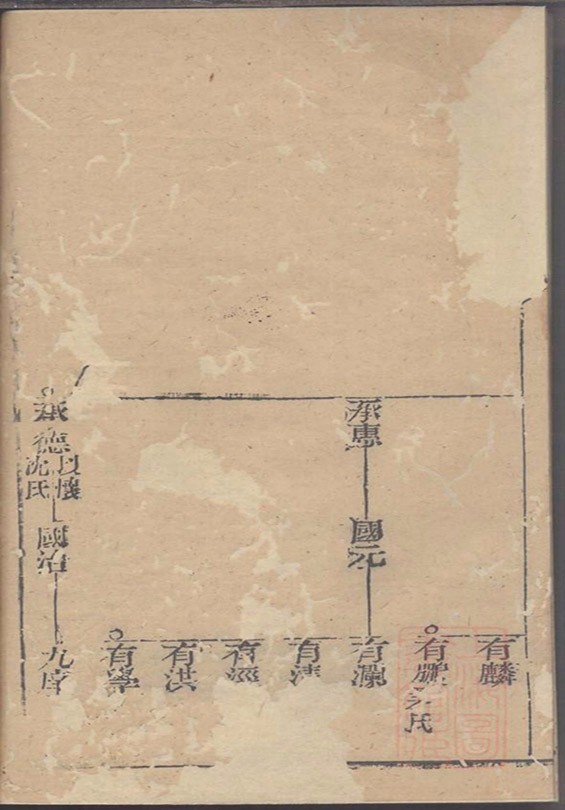 有麟
有鵬 氏
承惠 國元 有瀾
有清
有涇
有洪
有學
承德 以懷 沈氏 國治 九序